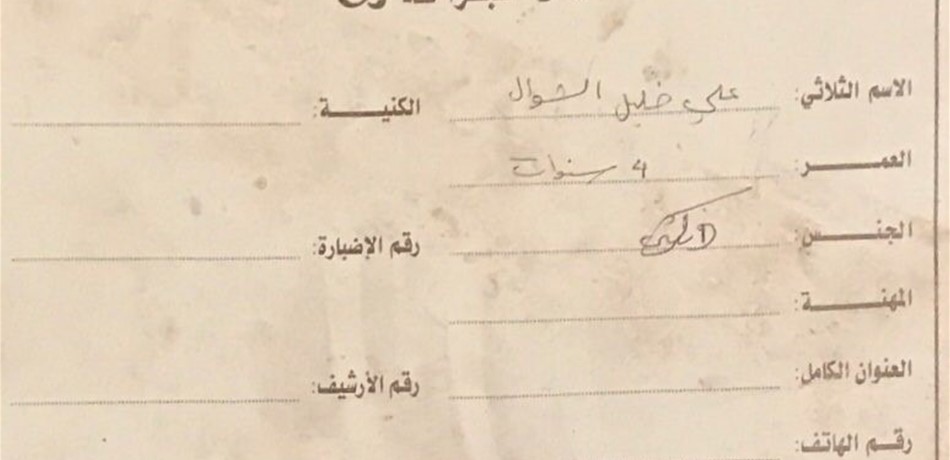 الاسم الثلاثي: علي خليل الشوال الكنيــة:
العمــر: 4 سنوات
الجنــس: ذكر رقم الإضبارة:
المهنــة:
العنوان الكامل: رقم الأرشيف:
رقـم الهاتف: